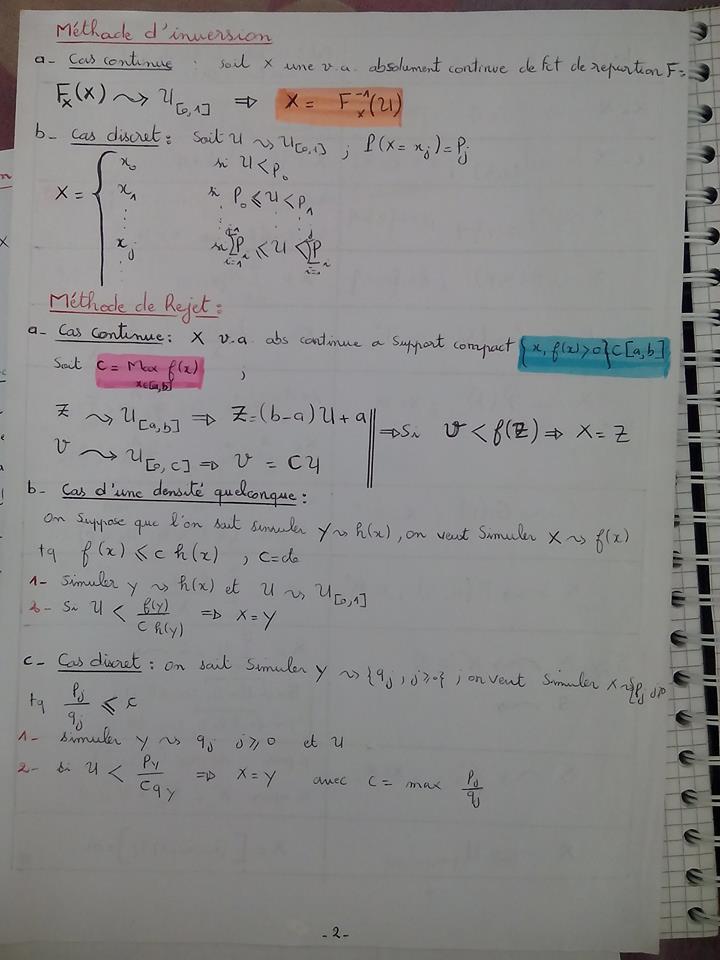 Méthode d'inversion
a- Cas continue : soit X une v.a. absolument continue de fct de repartion F=
F_X(X) ⇝ U_[0,1] ⇒ X = F_X^{-1}(U)
b- Cas discret : Soit U ⇝ U_[0,1] ; P(X = x_j) = P_j
X = { x_0 si U < P_0
x_1 si P_0 ⩽ U < P_1
⋮ ⋮ ⋮
x_j si ∑_{i=1}^{j-1} P_i ⩽ U < ∑_{i=0}^{j} P_i
⋮
Méthode de Rejet :
a- Cas continue : X v.a. abs continue a Support compact {x, f(x) > 0} ⊂ [a,b]
Soit C = Max_{x∈[a,b]} f(x) ;
Z ⇝ U_[a,b] ⇒ Z = (b-a)U + a
V ⇝ U_[0,C] ⇒ V = CU
⇒ Si V < f(Z) ⇒ X = Z
b- Cas d'une densité quelconque :
On Suppose que l'on sait simuler Y ⇝ h(x), on veut Simuler X ⇝ f(x)
tq f(x) ⩽ c h(x) , C=cte
1- Simuler Y ⇝ h(x) et U ⇝ U_[0,1]
2- Si U < f(Y) / C h(Y) ⇒ X = Y
c- Cas discret : On sait Simuler Y ⇝ {q_j, j ⩾ 0} ; on veut Simuler X ⇝ {P_j, j⩾0
tq P_j / q_j ⩽ C
1- Simuler Y ⇝ q_j j ⩾ 0 et U
2- Si U < P_Y / C q_Y ⇒ X = Y avec C = max P_j / q_j
- 2 -